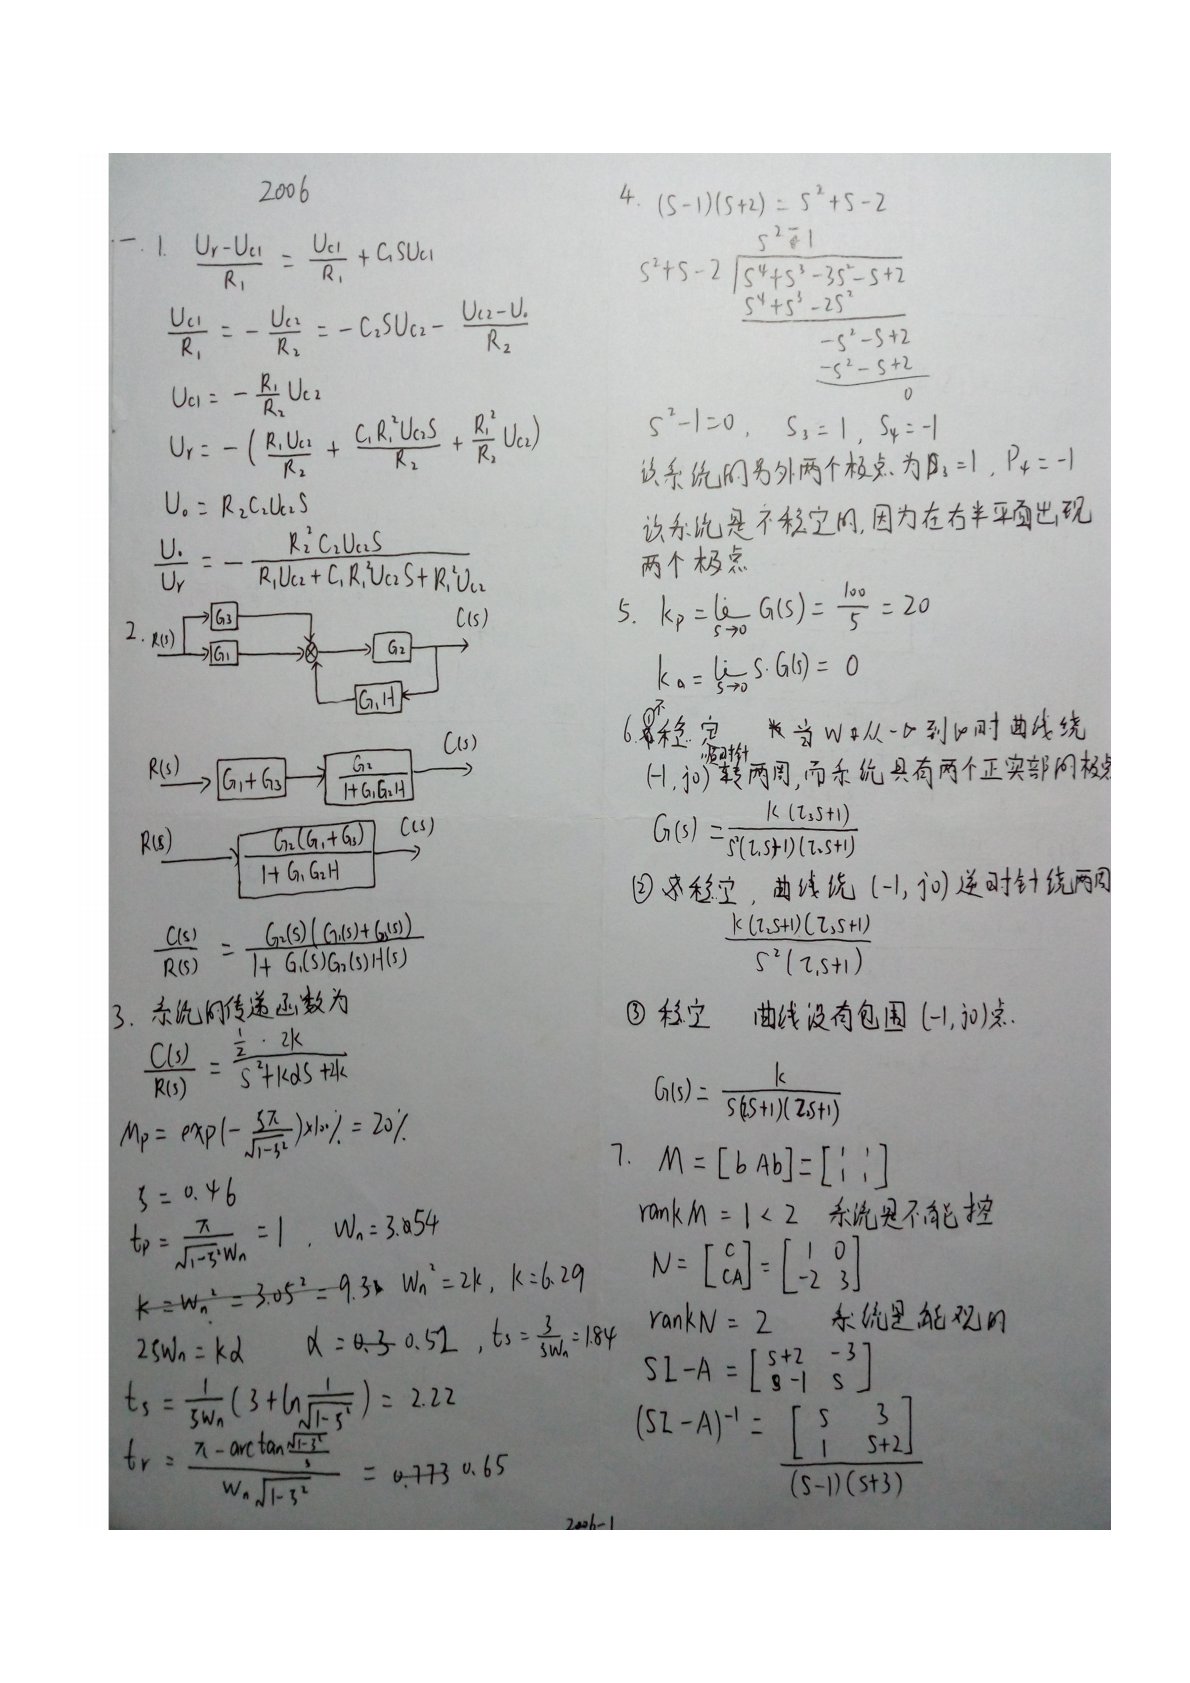 2006
一. 1. (Ur-Uc1)/R1 = Uc1/R1 + C1SUc1
Uc1/R1 = -Uc2/R2 = -C2SUc2 - (Uc2-U0)/R2
Uc1 = -R1/R2 Uc2
Ur = -(R1Uc2/R2 + C1R1²Uc2S/R2 + R1²/R2 Uc2)
U0 = R2C2Uc2S
U0/Ur = - R2²C2Uc2S/(R1Uc2+C1R1²Uc2S+R1²Uc2)
2. R(s) G3 G1 G2 C(s)
G1H
R(s) G1+G3 G2/(1+G1G2H) C(s)
R(s) G2(G1+G3)/(1+G1G2H) C(s)
C(s)/R(s) = G2(s)(G1(s)+G3(s))/(1+G1(s)G2(s)H(s))
3. 系统的传递函数为
C(s)/R(s) = (1/2·2k)/(S²+kαS+2k)
Mp = exp(-ζπ/√(1-ζ²))×100% = 20%
ζ = 0.46
tp = π/(√(1-ζ²)Wn) = 1, Wn = 3.54
k = Wn² = 3.05² = 9.3 Wn² = 2k, k = 6.29
2ζWn = kα α = 0.3 0.52, ts = 3/(ζWn) = 1.84
ts = 1/(ζWn) (3+ln 1/√(1-ζ²)) = 2.22
tr = (π-arctan √(1-ζ²)/ζ)/(Wn√(1-ζ²)) = 0.773 0.65
4. (S-1)(S+2) = S²+S-2
S²-1
S²+S-2 √S⁴+S³-3S²-S+2
S⁴+S³-2S²
-S²-S+2
-S²-S+2
0
S²-1=0, S3=1, S4=-1
该系统的另外两个极点为P3=1, P4=-1
该系统是不稳定的,因为在右半平面出现
两个极点
5. kp = lim S→0 G(S) = 100/5 = 20
ka = lim S→0 S·G(s) = 0
6. ①不稳定 当W从-∞到∞时曲线绕
(-1, j0)顺时针转两周,而系统具有两个正实部的极点
G(s) = k(τ3S+1)/(S²(τ1S+1)(τ2S+1))
② 稳定, 曲线绕(-1, j0)逆时针绕两周
k(τ2S+1)(τ3S+1)/(S²(τ1S+1))
③ 稳定 曲线没有包围(-1, j0)点.
G(s) = k/(S(τ1S+1)(τ2S+1))
7. M = [b Ab] = [1 1; 1 1]
rankM = 1 < 2 系统是不能控
N = [C; CA] = [1 0; -2 3]
rankN = 2 系统是能观的
SI-A = [S+2 -3; -1 S]
(SI-A)⁻¹ = [S 3; 1 S+2]/((S-1)(S+3))
2006-1